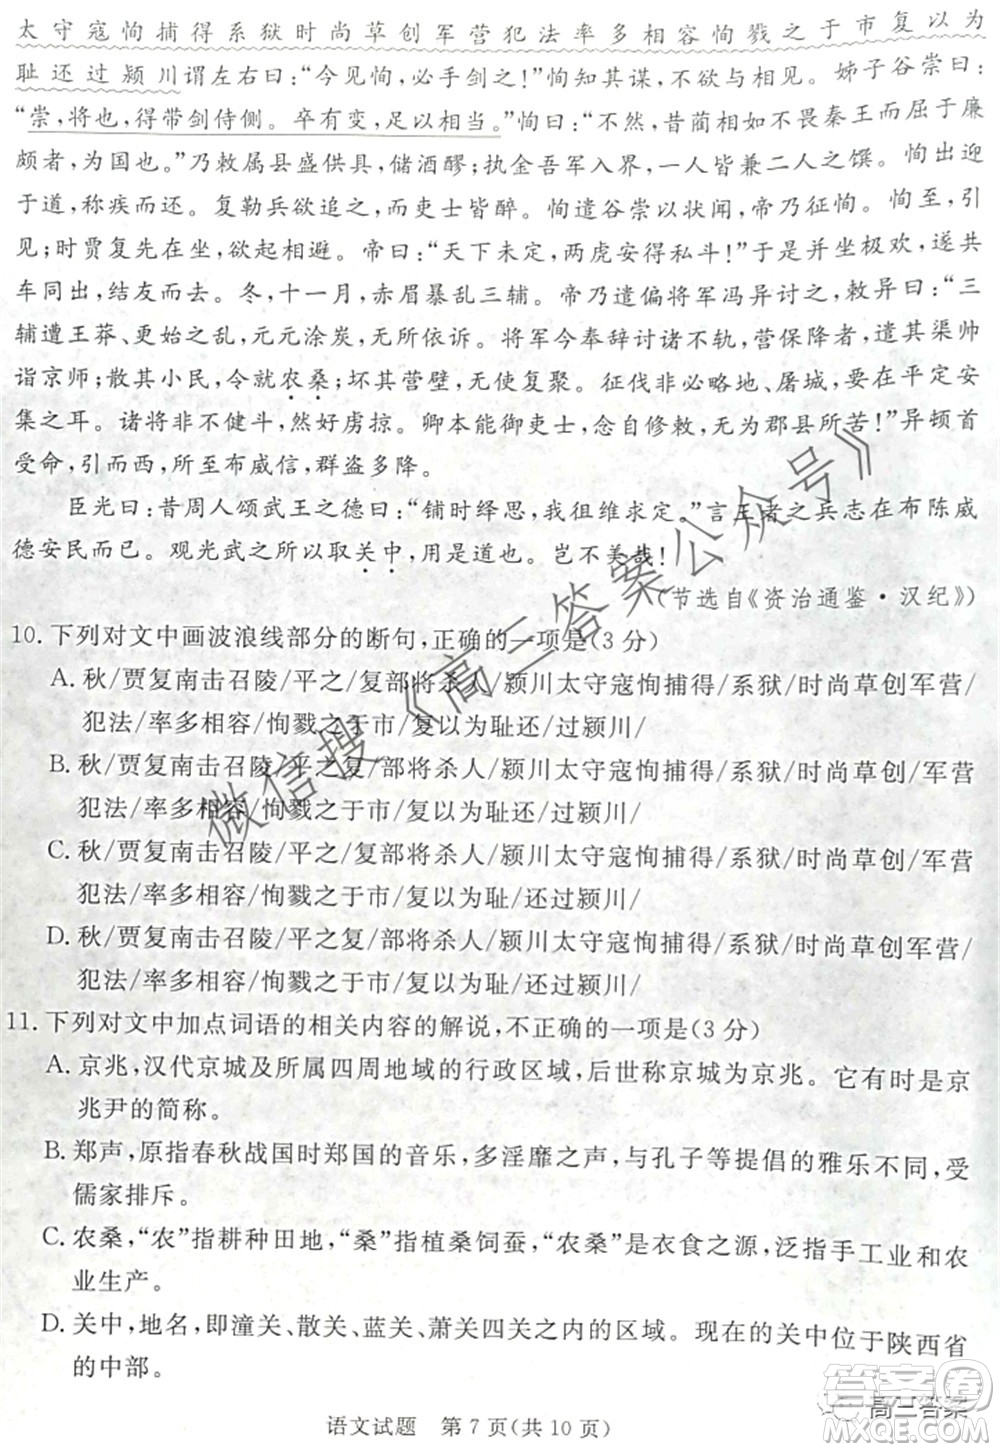 太守寇恂捕得系狱时尚草创军营犯法率多相容恂戮之于市复以为
耻还过颍川谓左右曰：“今见恂，必手剑之！”恂知其谋，不欲与相见。姊子谷崇曰：
“崇，将也，得带剑侍侧。卒有变，足以相当。”恂曰：“不然，昔蔺相如不畏秦王而屈于廉
颇者，为国也。”乃敕属县盛供具，储酒醪；执金吾军入界，一人皆兼二人之馔。恂出迎
于道，称疾而还。复勒兵欲追之，而吏士皆醉。恂遣谷崇以状闻，帝乃征恂。恂至，引
见；时贾复先在坐，欲起相避。帝曰：“天下未定，两虎安得私斗！”于是并坐极欢，遂共
车同出，结友而去。冬，十一月，赤眉暴乱三辅。帝乃遣偏将军冯异讨之，敕异曰：“三
辅遭王莽、更始之乱，元元涂炭，无所依诉。将军今奉辞讨诸不轨，营保降者，遣其渠帅
诣京师；散其小民，令就农桑；坏其营壁，无使复聚。征伐非必略地、屠城，要在平定安
集之耳。诸将非不健斗，然好虏掠。卿本能御吏士，念自修敕，无为郡县所苦！”异顿首
受命，引而西，所至布威信，群盗多降。
臣光曰：昔周人颂武王之德曰：“铺时绎思，我徂维求定。”言王者之兵志在布陈威
德安民而已。观光武之所以取关中，用是道也。岂不美哉！
（节选自《资治通鉴·汉纪》）
10. 下列对文中画波浪线部分的断句，正确的一项是（3 分）
A. 秋/贾复南击召陵/平之/复部将杀人/颍川太守寇恂捕得/系狱/时尚草创军营/
犯法/率多相容/恂戮之于市/复以为耻还/过颍川/
B. 秋/贾复南击召陵/平之复/部将杀人/颍川太守寇恂捕得/系狱/时尚草创/军营
犯法/率多相容/恂戮之于市/复以为耻/还过颍川/
C. 秋/贾复南击召陵/平之/复部将杀人/颍川太守寇恂捕得/系狱/时尚草创/军营
犯法/率多相容/恂戮之于市/复以为耻/还过颍川/
D. 秋/贾复南击召陵/平之复/部将杀人/颍川太守寇恂捕得/系狱/时尚草创军营/
犯法/率多相容/恂戮之于市/复以为耻还/过颍川/
11. 下列对文中加点词语的相关内容的解说，不正确的一项是（3 分）
A. 京兆，汉代京城及所属四周地域的行政区划，后世称京城为京兆。它有时是京
兆尹的简称。
B. 郑声，原指春秋战国时郑国的音乐，多淫靡之声，与孔子等提倡的雅乐不同，受
儒家排斥。
C. 农桑，“农”指耕种田地，“桑”指植桑饲蚕，“农桑”是衣食之源，泛指手工业和农
业生产。
D. 关中，地名，即潼关、散关、蓝关、萧关四关之内的区域。现在的关中位于陕西省
的中部。
语文试题 第 7 页（共 10 页）
微信搜《高三答案公众号》
高三答案
答案圈
MXQE.COM